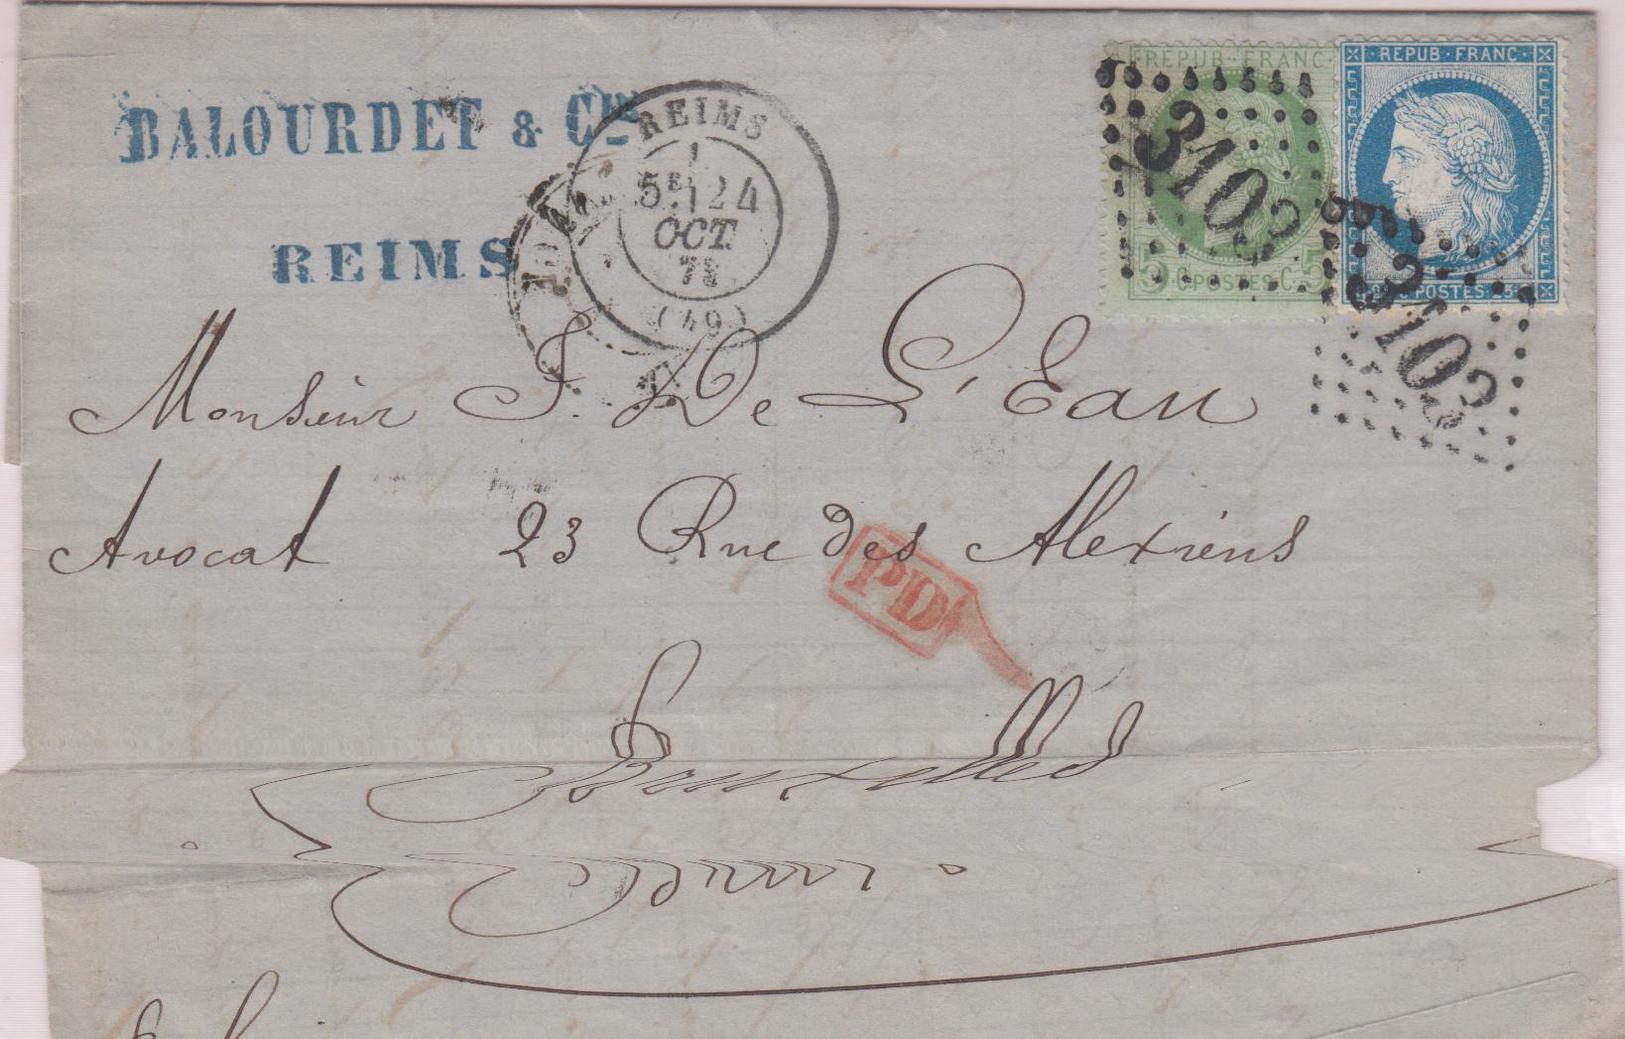 BALOURDET & Cie
REIMS
REIMS
5E 24
OCT.
(49)
REPUB·FRANC·
5 C·POSTES·C·5
3103
·REPUB·FRANC·
POSTES·25
3103
Monsieur J. De L'Eau
Avocat 23 Rue des Alexiens
PD
Bruxelles